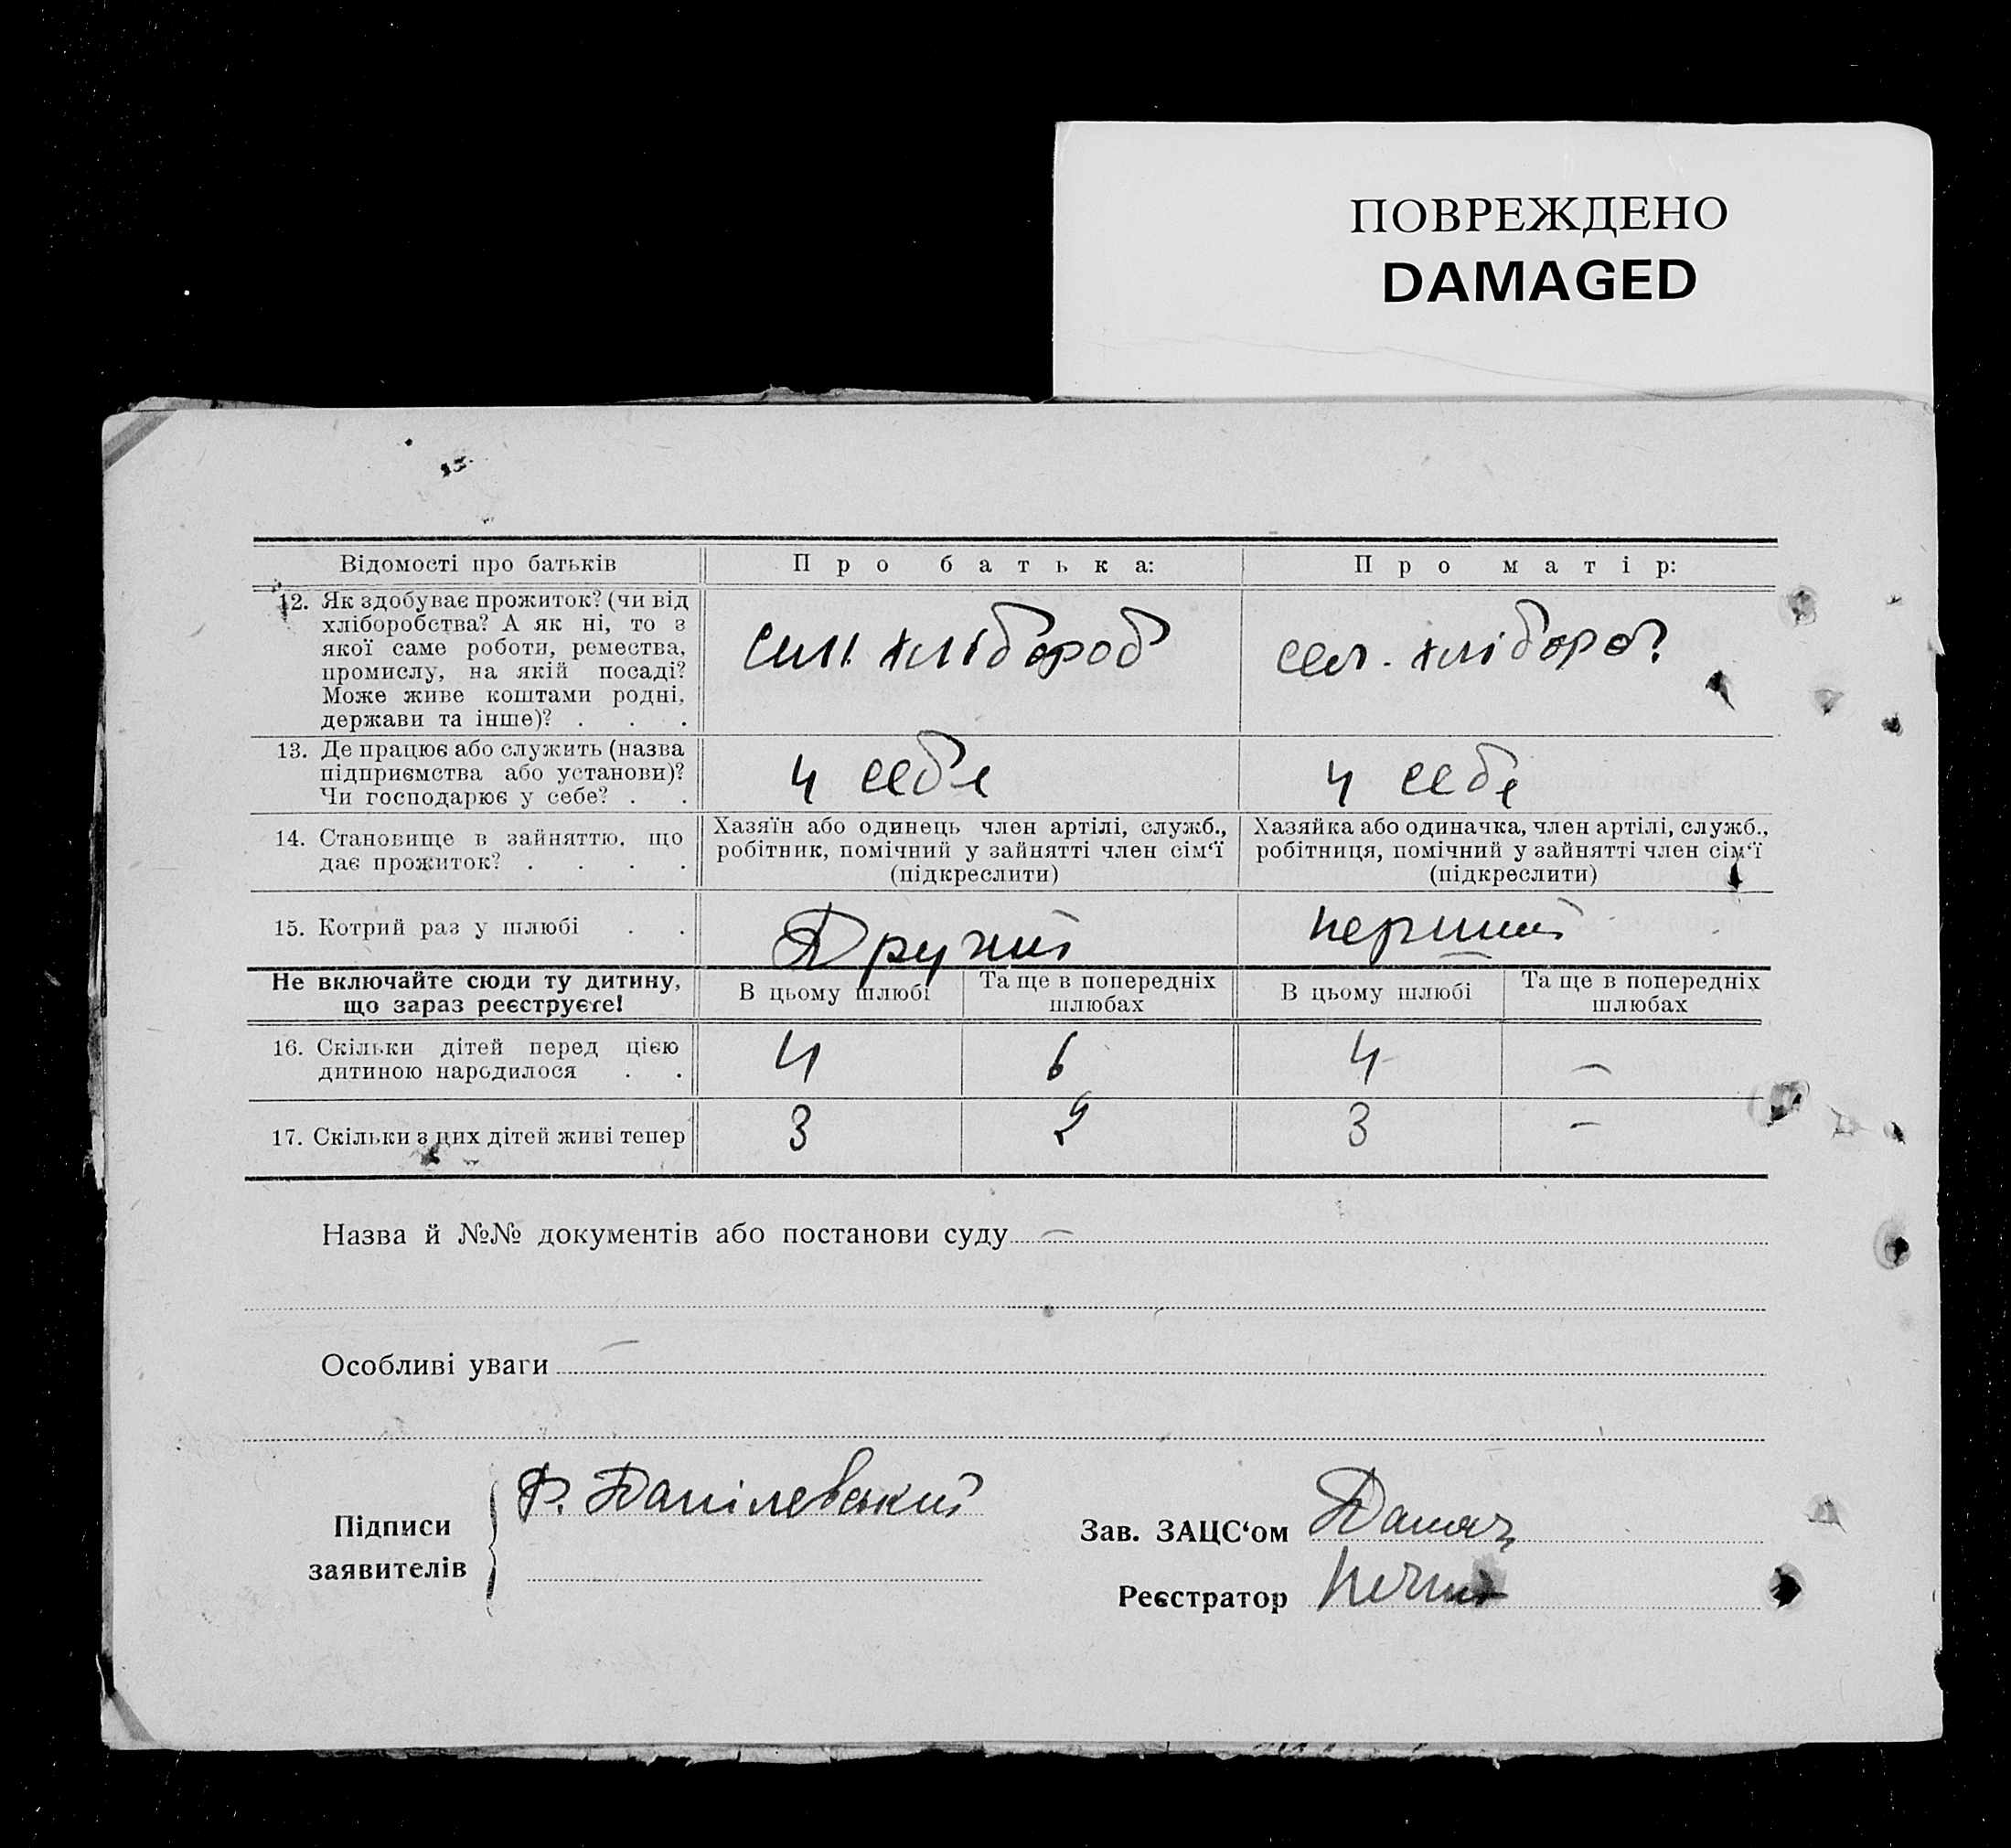 ПОВРЕЖДЕНО
DAMAGED
Відомості про батьків
Про батька:
Про матір:
12. Як здобуває прожиток? (чи від
хліборобства? А як ні, то з
якої саме роботи, ремества,
промислу, на якій посаді?
Може живе коштами родні,
держави та інше)? . . .
сел. хлібороб
сел. хлібороб
13. Де працює або служить (назва
підприємства або установи)?
Чи господарює у себе? . .
у себе
у себе
14. Становище в зайняттю, що
дає прожиток? . . . .
Хазяїн або одинець член артілі, служб.,
робітник, помічний у зайнятті член сім‘ї
(підкреслити)
Хазяйка або одиначка, член артілі, служб.,
робітниця, помічний у зайнятті член сім‘ї
(підкреслити)
15. Котрий раз у шлюбі . .
Другий
перший
Не включайте сюди ту дитину,
що зараз реєструєте!
В цьому шлюбі
Та ще в попередніх
шлюбах
В цьому шлюбі
Та ще в попередніх
шлюбах
16. Скільки дітей перед цією
дитиною народилося . .
4
6
4
—
17. Скільки з цих дітей живі тепер
3
2
3
—
Назва й №№ документів або постанови суду —
Особливі уваги —
Підписи
заявителів
Р. Данілевський
Зав. ЗАЦС‘ом
Реєстратор